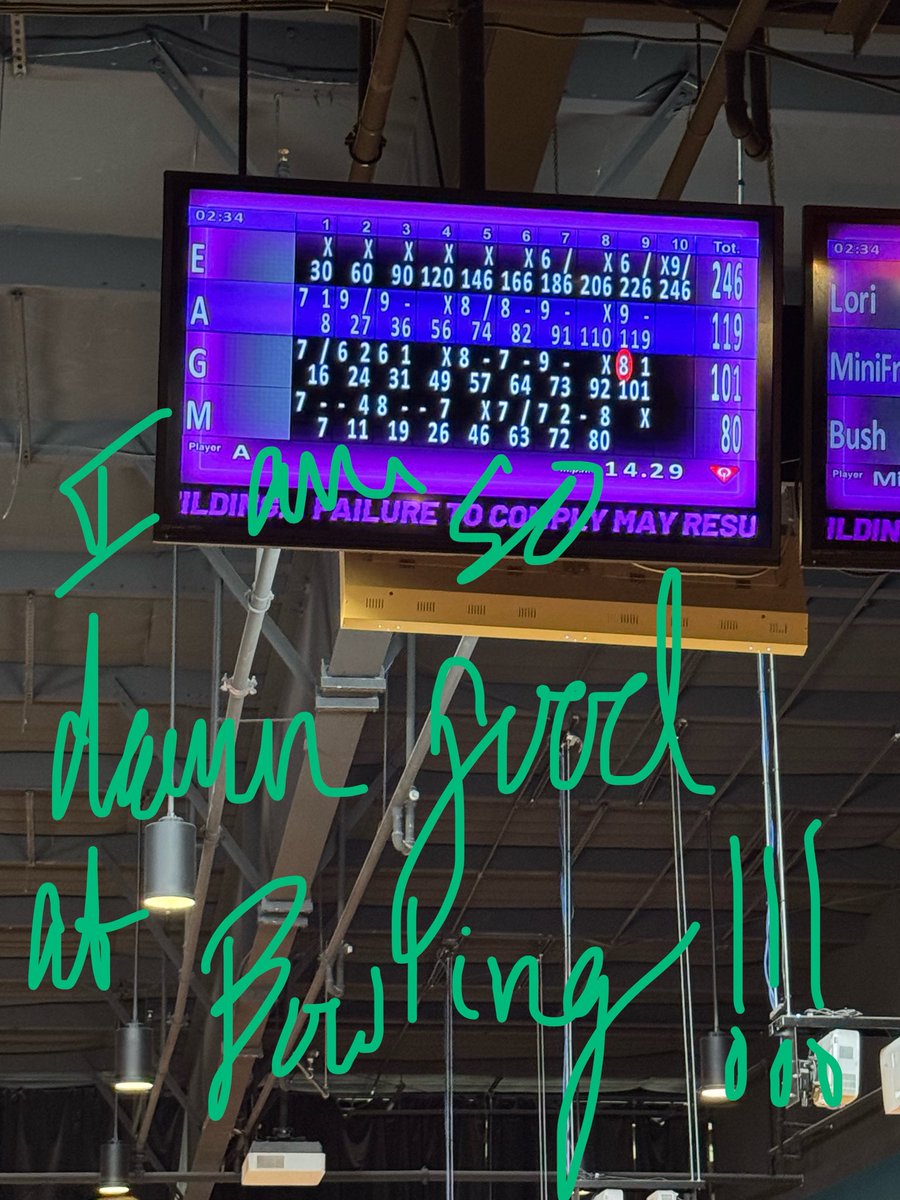 02:34 1 2 3 4 5 6 7 8 9 10 Tot.
E X X X X X X 6 / X 6 / X9/ 246
30 60 90 120 146 166 186 206 226 246
A 7 1 9 / 9 - X 8 / 8 - 9 - X 9 - 119
8 27 36 56 74 82 91 110 119
G 7 / 6 2 6 1 X 8 - 7 - 9 - X 8 1 101
16 24 31 49 57 64 73 92 101
M 7 - - 4 8 - - 7 X 7 / 7 2 - 8 X 80
7 11 19 26 46 63 72 80
Player A 14.29
ILDING. FAILURE TO COMPLY MAY RESU
02:34
Lori
MiniFr
Bush
Player Mi
ILDIN
I am so
damn good
at Bowling!!!